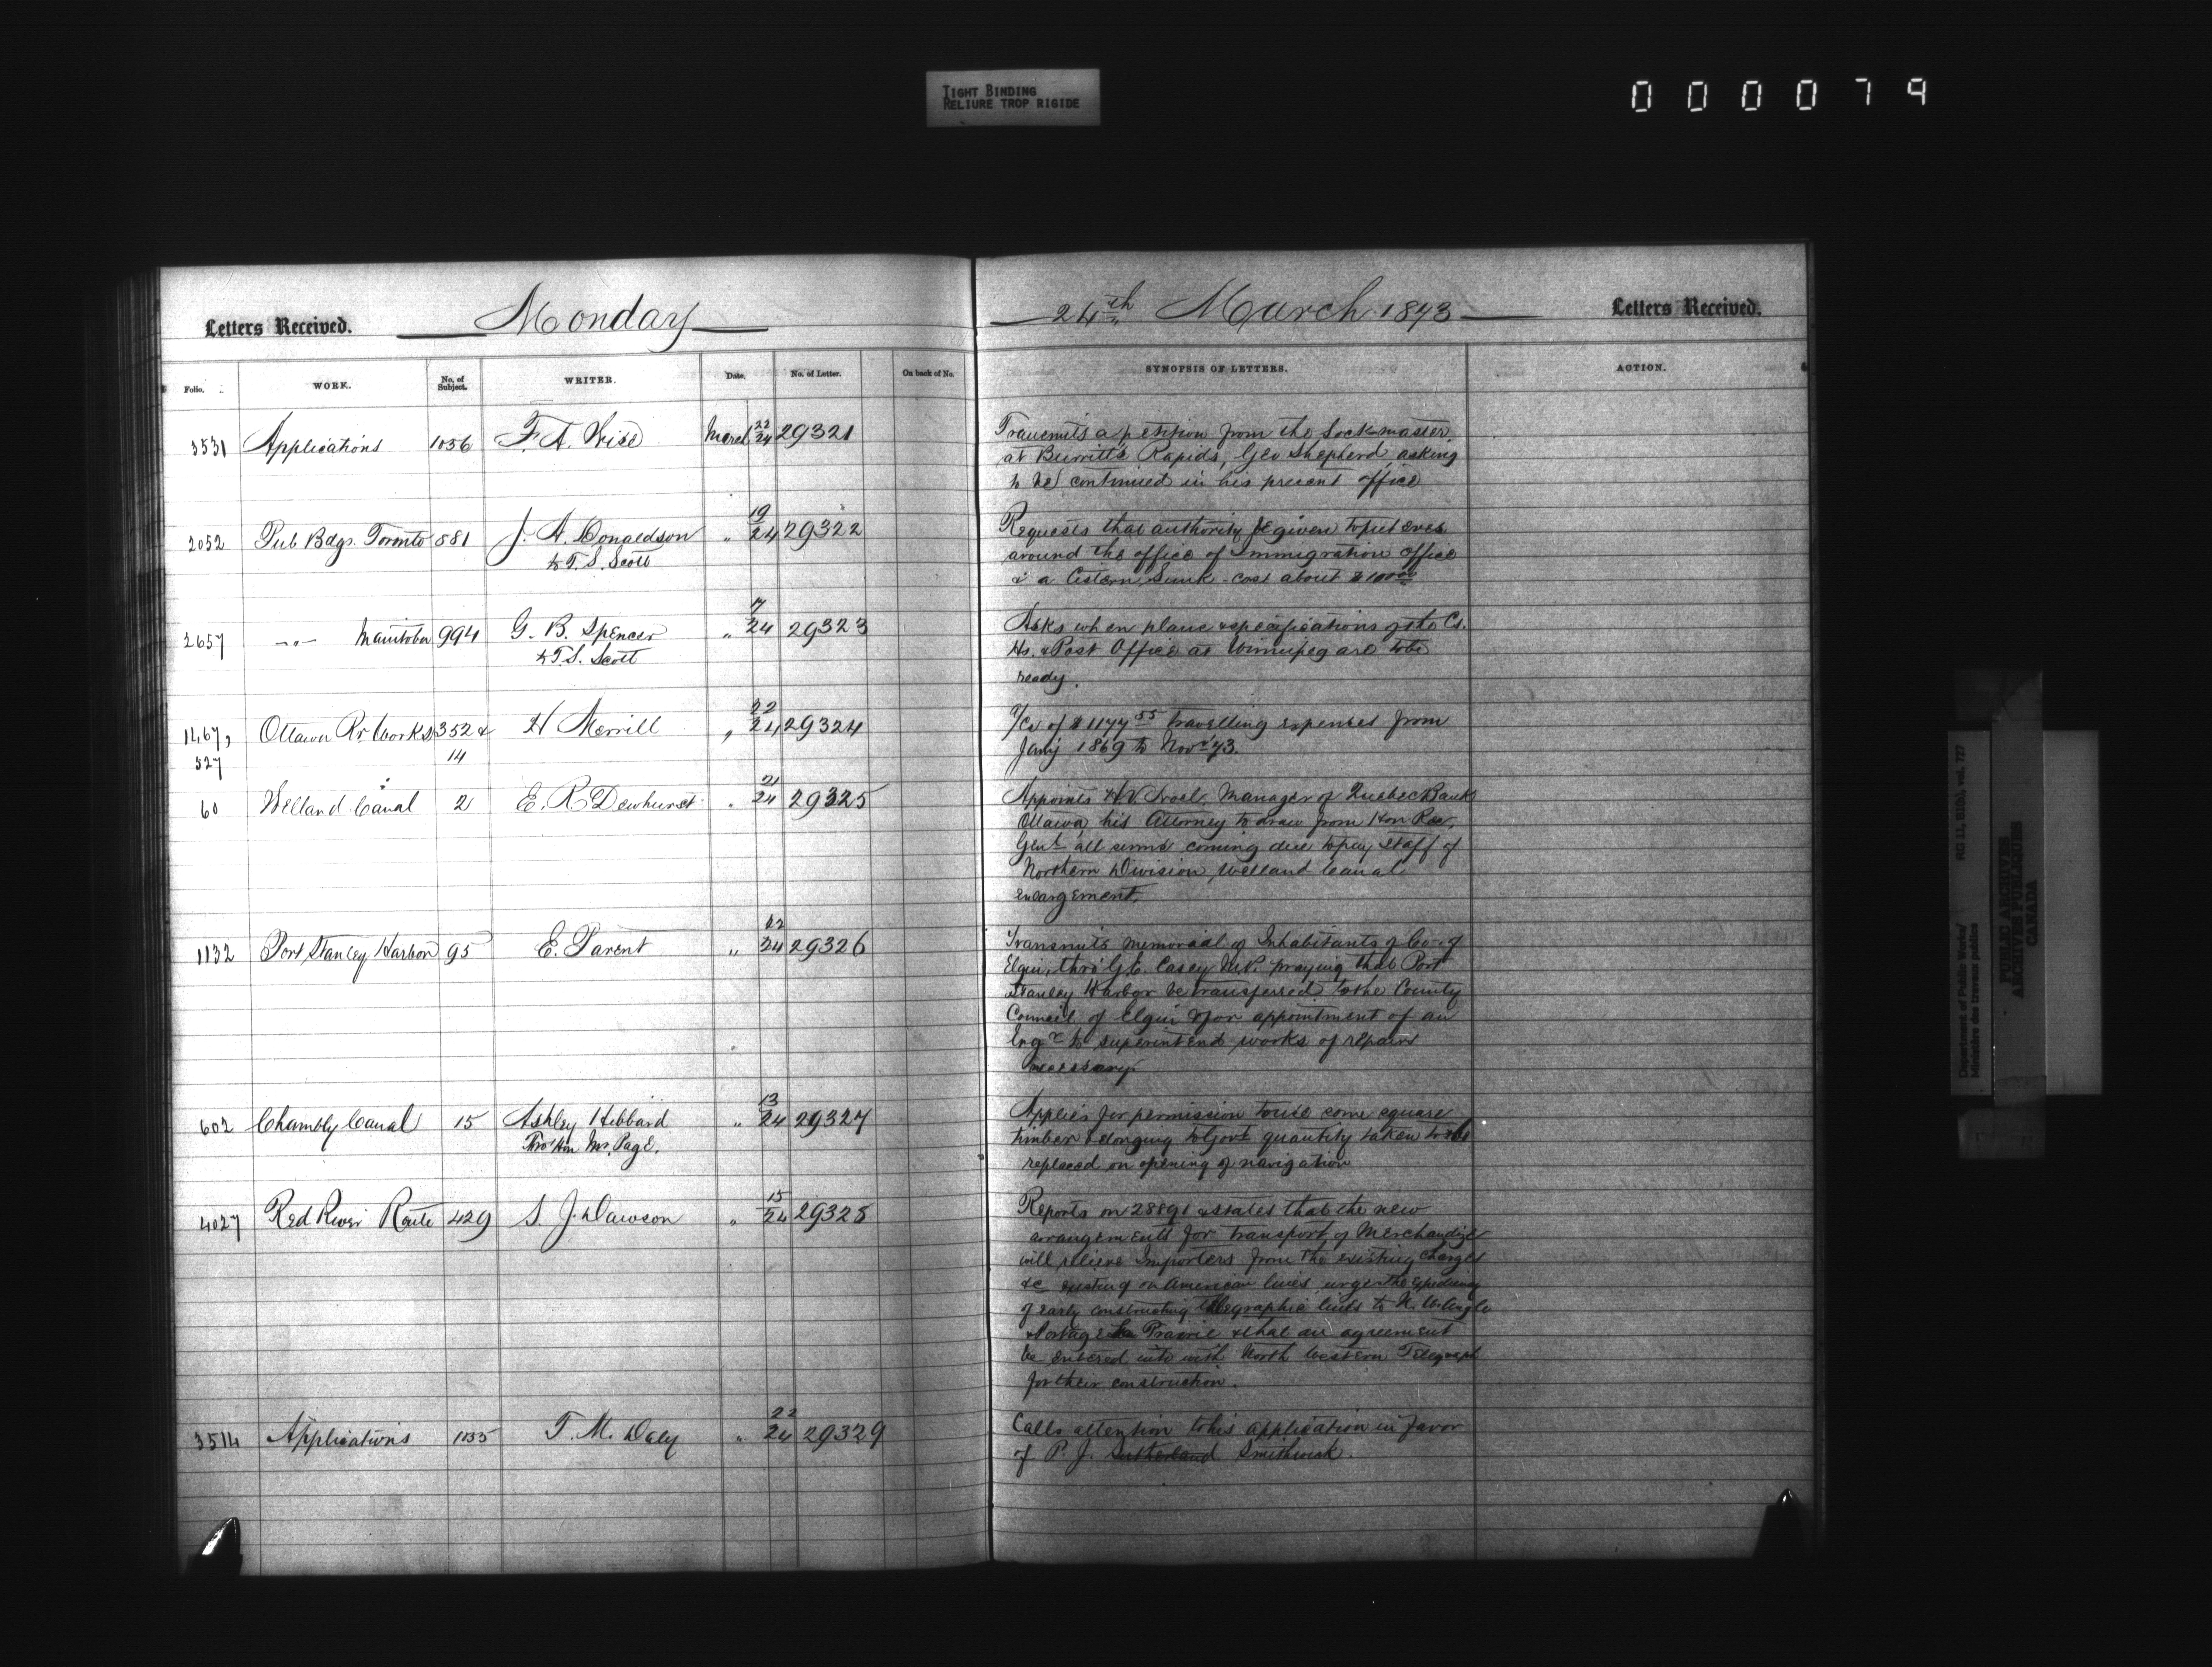 TIGHT BINDING
RELIURE TROP RIGIDE
000079
Letters Received.
Monday
24th March 1873
Letters Received.
Folio.
WORK.
No. of Subject.
WRITER.
Date.
No. of Letter.
On back of No.
SYNOPSIS OF LETTERS.
ACTION.
3531 Applications 1036 F. A. Wise March 22/24 29321
Transmits a petition from the Lockmaster
at Burritt's Rapids, Geo Shepherd, asking
to be continued in his present office
2052 Pub Bdgs. Toronto 581 J. A. Donaldson " 19/24 29322
to T. S. Scott
Requests that authority be given to put eves
around the office of Immigration office
& a Cistern Sunk - cost about $100.00
2657 -"- Manitoba 994 G. B. Spencer " 7/24 29323
to T. S. Scott
Asks when plans & specifications of the Cs.
Hs. & Post Office at Winnipeg are to be
ready.
1467, Ottawa Rr. Works 352 & H Merrill " 22/24 29324
527 14
a/cs of $1177 55 travelling expenses from
Jany 1869 to Novr 73.
60 Welland Canal 2 E. R. Dewhurst " 21/24 29325
Appoints H V Noel, Manager of Quebec Bank
Ottawa, his Attorney to draw from Hon Rec.
Genl. all sums coming due to pay staff of
Northern Division Welland Canal
enlargement.
1132 Port Stanley Harbor 95 E. Parent " 22/24 29326
Transmits memorial of Inhabitants of Co. of
Elgin, thro' G. E. Casey M.P. praying that Port
Stanley Harbor be transferred to the County
Council of Elgin & for appointment of an
Engr to superintend works of repairs
necessary
602 Chambly Canal 15 Ashley Hibbard " 13/24 29327
Thro' Hon Mr. Page.
Applies for permission to use some square
timber belonging to Govt quantity taken to be
replaced on opening of navigation
4027 Red River Route 429 S. J. Dawson " 15/24 29328
Reports on 28891 & states that the new
arrangements for transport of Merchandize
will relieve Importers from the existing charges
&c existing on American lines, urges the expediency
of early constructing telegraphic lines to N. W. Angle
& Portage La Prairie & that an agreement
be entered into with North Western Telegraph
for their construction.
3514 Applications 1035 T. M. Daly " 22/24 29329
Calls attention to his application in favor
of P. J. Sutherland Smithwick.
Department of Public Works/
Ministère des travaux publics
RG 11, B1(b), vol. 727
PUBLIC ARCHIVES
ARCHIVES PUBLIQUES
CANADA